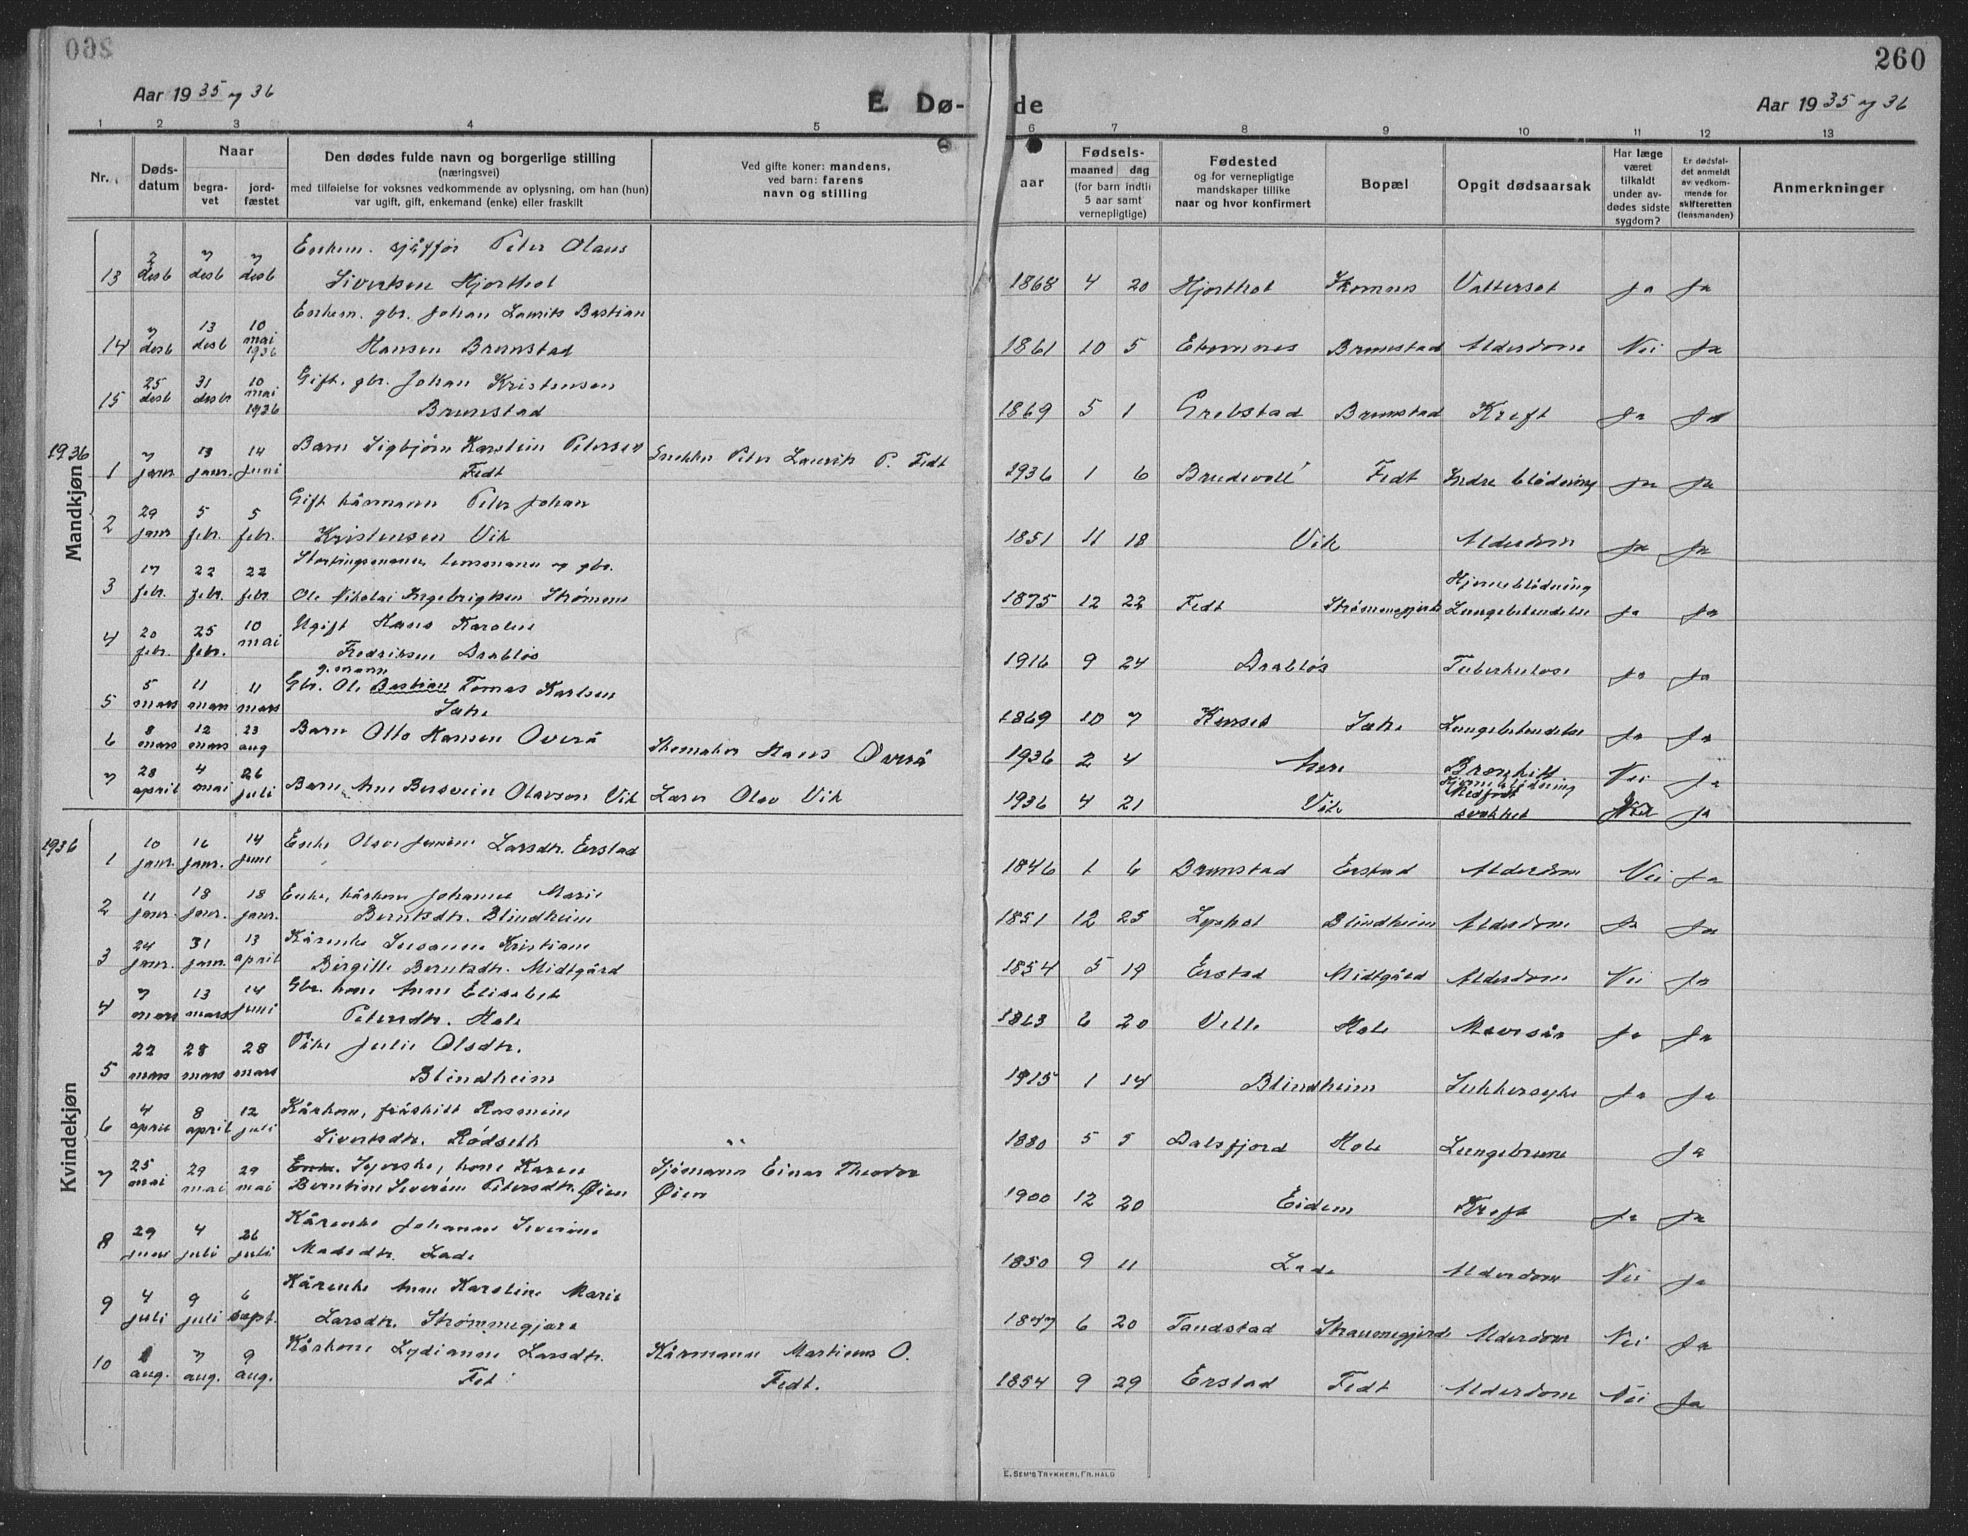 260
260
Aar 1935 og 36
E. Dø-
de
Aar 1935 og 36
1 2 3 4 5 6 7 8 9 10 11 12 13
Nr.
Døds-
datum
Naar
begra-
vet
jord-
fæstet
Den dødes fulde navn og borgerlige stilling
(næringsvei)
med tilføielse for voksnes vedkommende av oplysning, om han (hun)
var ugift, gift, enkemand (enke) eller fraskilt
Ved gifte koner: mandens,
ved barn: farens
navn og stilling
aar
Fødsels-
maaned dag
(for barn indtil
5 aar samt
vernepligtige)
Fødested
og for vernepligtige
mandskaper tillike
naar og hvor konfirmert
Bopæl
Opgit dødsaarsak
Har læge
været
tilkaldt
under av-
dødes sidste
sygdom?
Er dødsfal-
det anmeldt
av vedkom-
mende for
skifteretten
(lensmanden)
Anmerkninger
Mandkjøn
13 2 desb 7 desb 7 desb Enkem. sjåffør Peter Olaus
Sivertsen Hjorthol 1868 4 20 Hjorthol Vattersot Ja Ja
14 7 desb 13 desb 10 mai 1936 Enkem. gbr. Johan Laurits Bastian
Hansen Brunstad 1861 10 5 Ekornnes Brunstad Alderdom Nei Ja
15 25 desb 31 desbr 10 mai 1936 Gift. gbr. Johan Kristensen
Brunstad 1869 5 1 Grebstad Brunstad Kreft Ja Ja
1936
1 7 janr 13 janr. 14 juni Barn Sigbjørn Karstein Petersen
Fedt Snekker Peter Laurits P. Fedt 1936 1 6 Brudevoll Fedt Indre blødning Ja Ja
2 29 janr 5 febr. 5 febr. Gift kårmann Peter Johan
Kristensen Vik 1851 11 18 Vik Alderdom Ja Ja
3 17 febr. 22 febr. 22 febr Stortingsmann, lensmann og gbr.
Ole Nikolai Ingebrigtsen Strømme 1875 12 22 Fedt Strømmegjerde Hjerneblødning
Lungebetendelse Ja Ja
4 20 febr. 25 febr. 10 mai Ugift Hans Karolus
Fredriksen Drabløs 1916 9 24 Drabløs Tuberkulose Ja Ja
5 5 mars 11 mars 11 mars g. mann
Gbr. Ole Bastian Tomas Karlsen
1869 10 7 Lungebetendelse Ja Ja
6 8 mars 12 mars 23 aug Barn Otto Hansen Overå Skomaker Hans Overå 1936 2 4 Bronkitt Nei Ja
7 28 april 4 mai 26 juli Barn Olavson Vik Lærer Olav Vik 1936 4 21 Vik Hjerneblødning
Medfødt
svakhet Ja
Kvindekjøn
1936
1 10 janr. 16 janr. 14 juni Enke Larsdtr. Erstad 1846 1 6 Brunstad Erstad Alderdom Nei Ja
2 11 janr. 18 janr. 18 janr. Enke, kårkone Johanne Marie
Berntsdtr. Blindheim 1851 12 25 Lyshol Blindheim Alderdom Ja Ja
3 24 janr. 31 janr. 13 april Kårenke Susanne Kristiane
Birgitte Berntsdtr. Midtgård 1854 5 19 Erstad Midtgård Alderdom Nei Ja
4 7 mars 13 mars 14 juni Gbr. kone Anne Elisabet
Petersdtr. Hole 1863 6 20 Velle Hole Mavesår Ja Ja
5 22 mars 28 mars 28 mars Pike Julie Olsdtr.
Blindheim 1915 1 14 Blindheim Sukkersyke Ja Ja
6 4 april 8 april 12 juli Kårkone, fråskilt Rasmine
Sivertsdtr. Rødseth „ 1880 5 5 Dalsfjord Hole Lungebrune Ja
7 25 mai 29 mai 29 mai Syerske, kone Karen
Berntine Severine Petersdtr. Øien Sjømann Einar Theodor
Øien 1900 12 20 Eidem Kreft Ja Ja
8 29 juni 4 juli 26 juli Kårenke Johanne Severine
Madsdtr. Lade 1850 9 11 Lade Alderdom Nei Ja
9 4 juli 9 juli 6 sept. Kårenke Anne Karoline Marie
Larsdtr. Strømmegjære 1847 6 20 Tandstad Straumegjerde Alderdom Nei Ja
10 1 aug. 7 aug. 9 aug. Kårkone Lydianne Larsdtr.
Fet Kårmann Martinus O.
Fedt. 1854 9 29 Erstad Fedt Alderdom Nei Ja
E. SEM'S TRYKKERI, FR.HALD